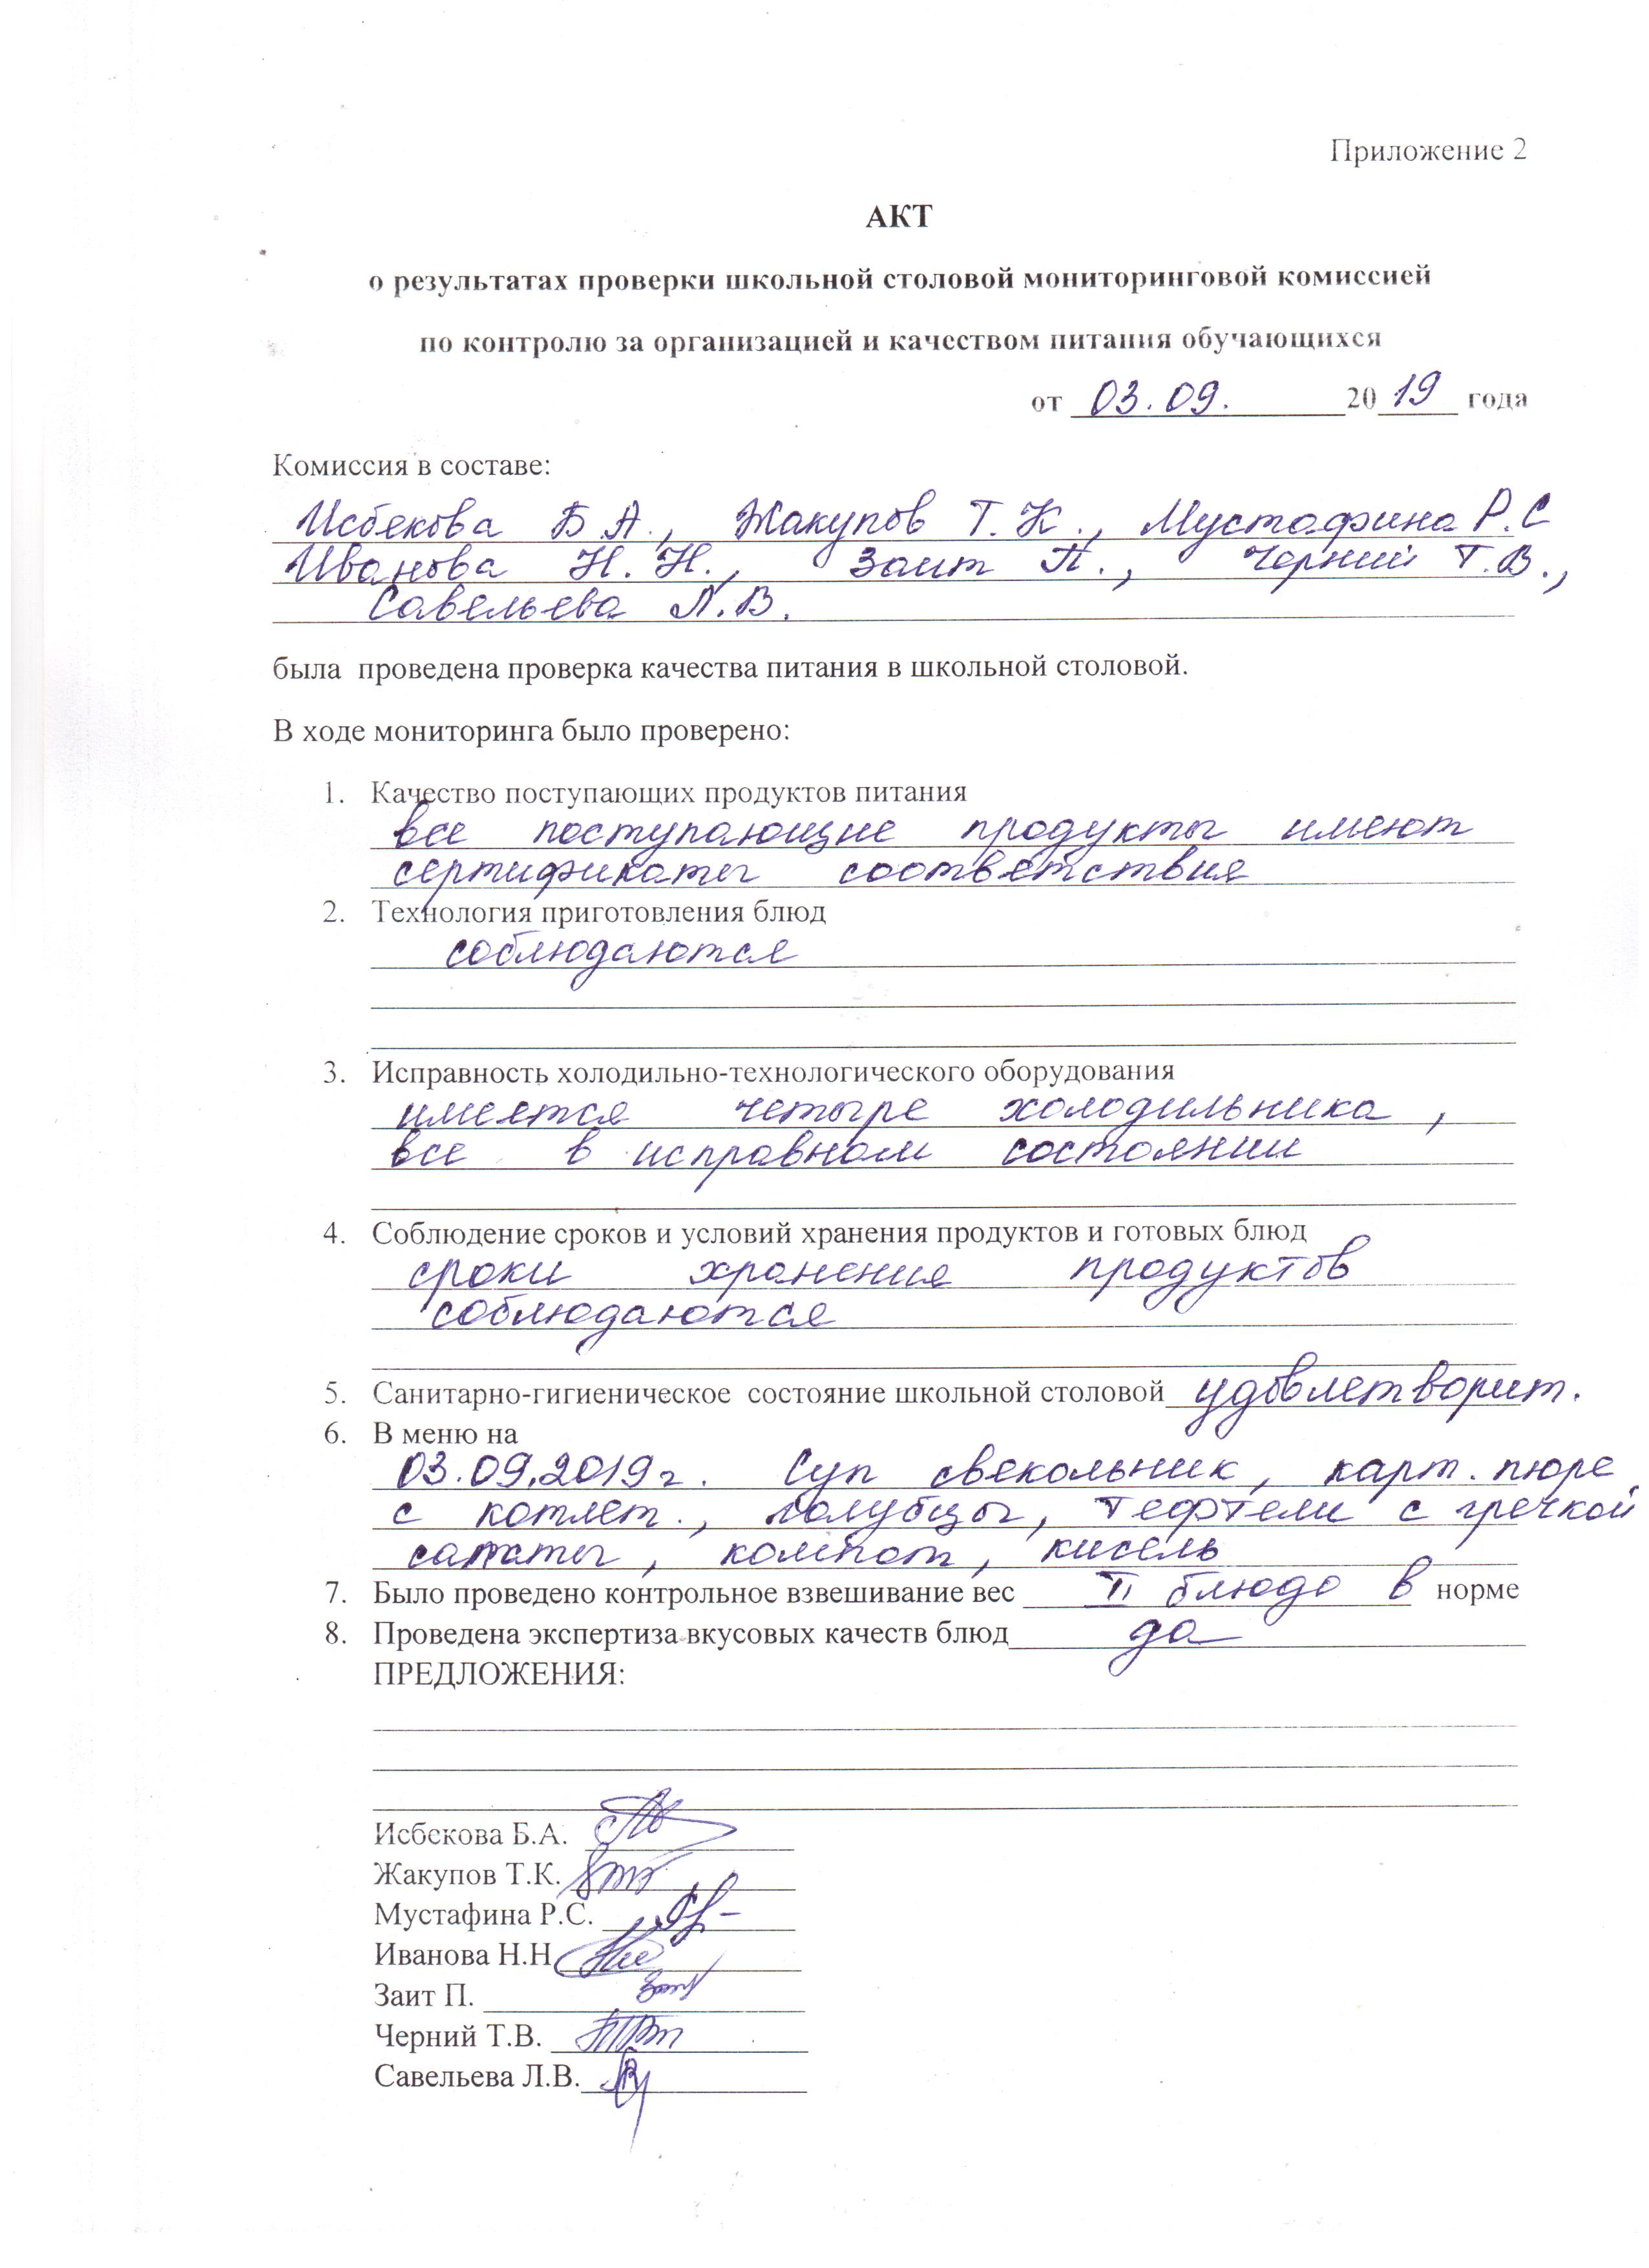 Приложение 2
АКТ
о результатах проверки школьной столовой мониторинговой комиссией
по контролю за организацией и качеством питания обучающихся
от 03.09. 2019 года
Комиссия в составе:
Исбекова Б А., Жакупов Т. К., Мустафина Р. С
Иванова Н. Н., Заит П., Черний Т. В.,
Савельева Л. В.
была проведена проверка качества питания в школьной столовой.
В ходе мониторинга было проверено:
1. Качество поступающих продуктов питания
все поступающие продукты имеют
сертификаты соответствия
2. Технология приготовления блюд
соблюдаются
3. Исправность холодильно-технологического оборудования
имеется четыре холодильника,
все в исправном состоянии
4. Соблюдение сроков и условий хранения продуктов и готовых блюд
сроки хранения продуктов
соблюдаются
5. Санитарно-гигиеническое состояние школьной столовой удовлетворит.
6. В меню на
03.09.2019г. Суп свекольник, карт. пюре
с котлет., голубцы, тефтели с гречкой
салаты, компот, кисель
7. Было проведено контрольное взвешивание вес II блюдо в норме
8. Проведена экспертиза вкусовых качеств блюд да
ПРЕДЛОЖЕНИЯ:
Исбекова Б.А.
Жакупов Т.К.
Мустафина Р.С.
Иванова Н.Н
Заит П.
Черний Т.В.
Савельева Л.В.